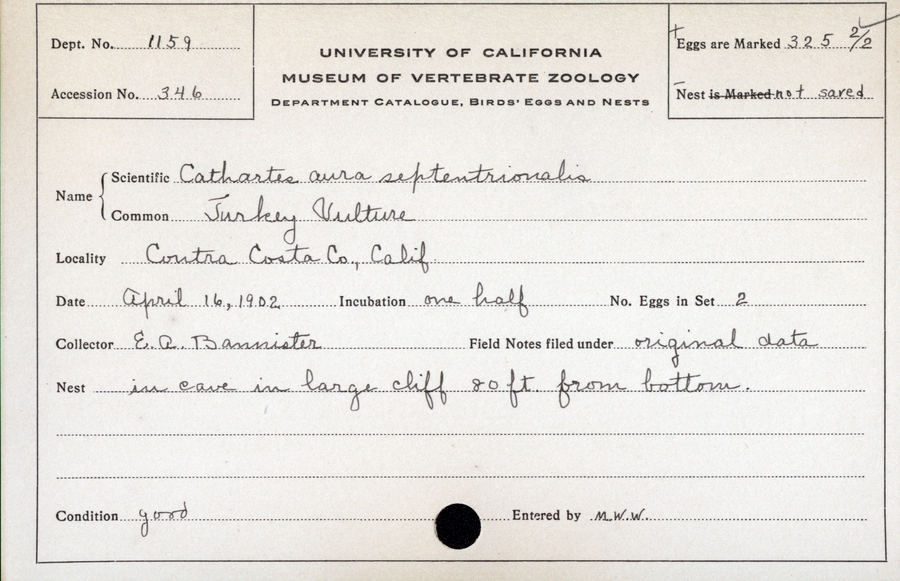 Dept. No. 1159
Accession No. 346
UNIVERSITY OF CALIFORNIA
MUSEUM OF VERTEBRATE ZOOLOGY
DEPARTMENT CATALOGUE, BIRDS' EGGS AND NESTS
Eggs are Marked 325 2/2
Nest is Marked not saved
Name
Scientific Cathartes aura septentrionalis
Common Turkey Vulture
Locality Contra Costa Co., Calif.
Date April 16, 1902 Incubation one half No. Eggs in Set 2
Collector E. A. Bannister Field Notes filed under original data
Nest in cave in large cliff 80 ft. from bottom.
Condition good Entered by M.W.W.